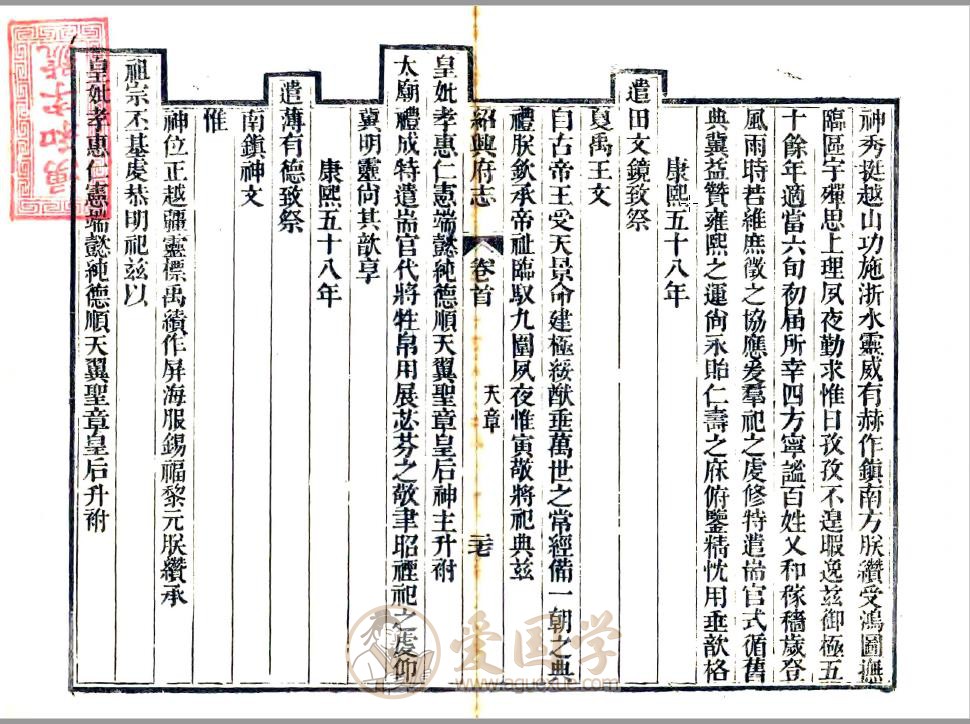 神秀挺越山功施浙水靈威有赫作鎮南方朕纘受鴻圖撫
臨區宇殫思上理夙夜勤求惟日孜孜不遑暇逸茲御極五
十餘年適當六旬初届所幸四方寧謐百姓乂和稼穡歲登
風雨時若維庶徵之協應爰羣祀之虔修特遣耑官式循舊
典冀益贊雍熙之運尙永貽仁壽之庥俯鑒精忱用垂歆格
康熙五十八年
遣田文鏡致祭
夏禹王文
自古帝王受天景命建極綏猷垂萬世之常經備一朝之典
禮朕欽承帝祉臨馭九圍夙夜惟寅敬將祀典茲
紹興府志 卷首 天章 三七
皇妣孝惠仁憲端懿純德順天翼聖章皇后神主升祔
太廟禮成特遣耑官代將牲帛用展苾芬之敬聿昭禋祀之虔仰
冀明靈尙其歆享
康熙五十八年
遣薄有德致祭
南鎮神文
惟
神位正越疆靈標禹績作屏海服錫福黎元朕纘承
祖宗丕基虔恭明祀茲以
皇妣孝惠仁憲端懿純德順天翼聖章皇后升祔
爱国学